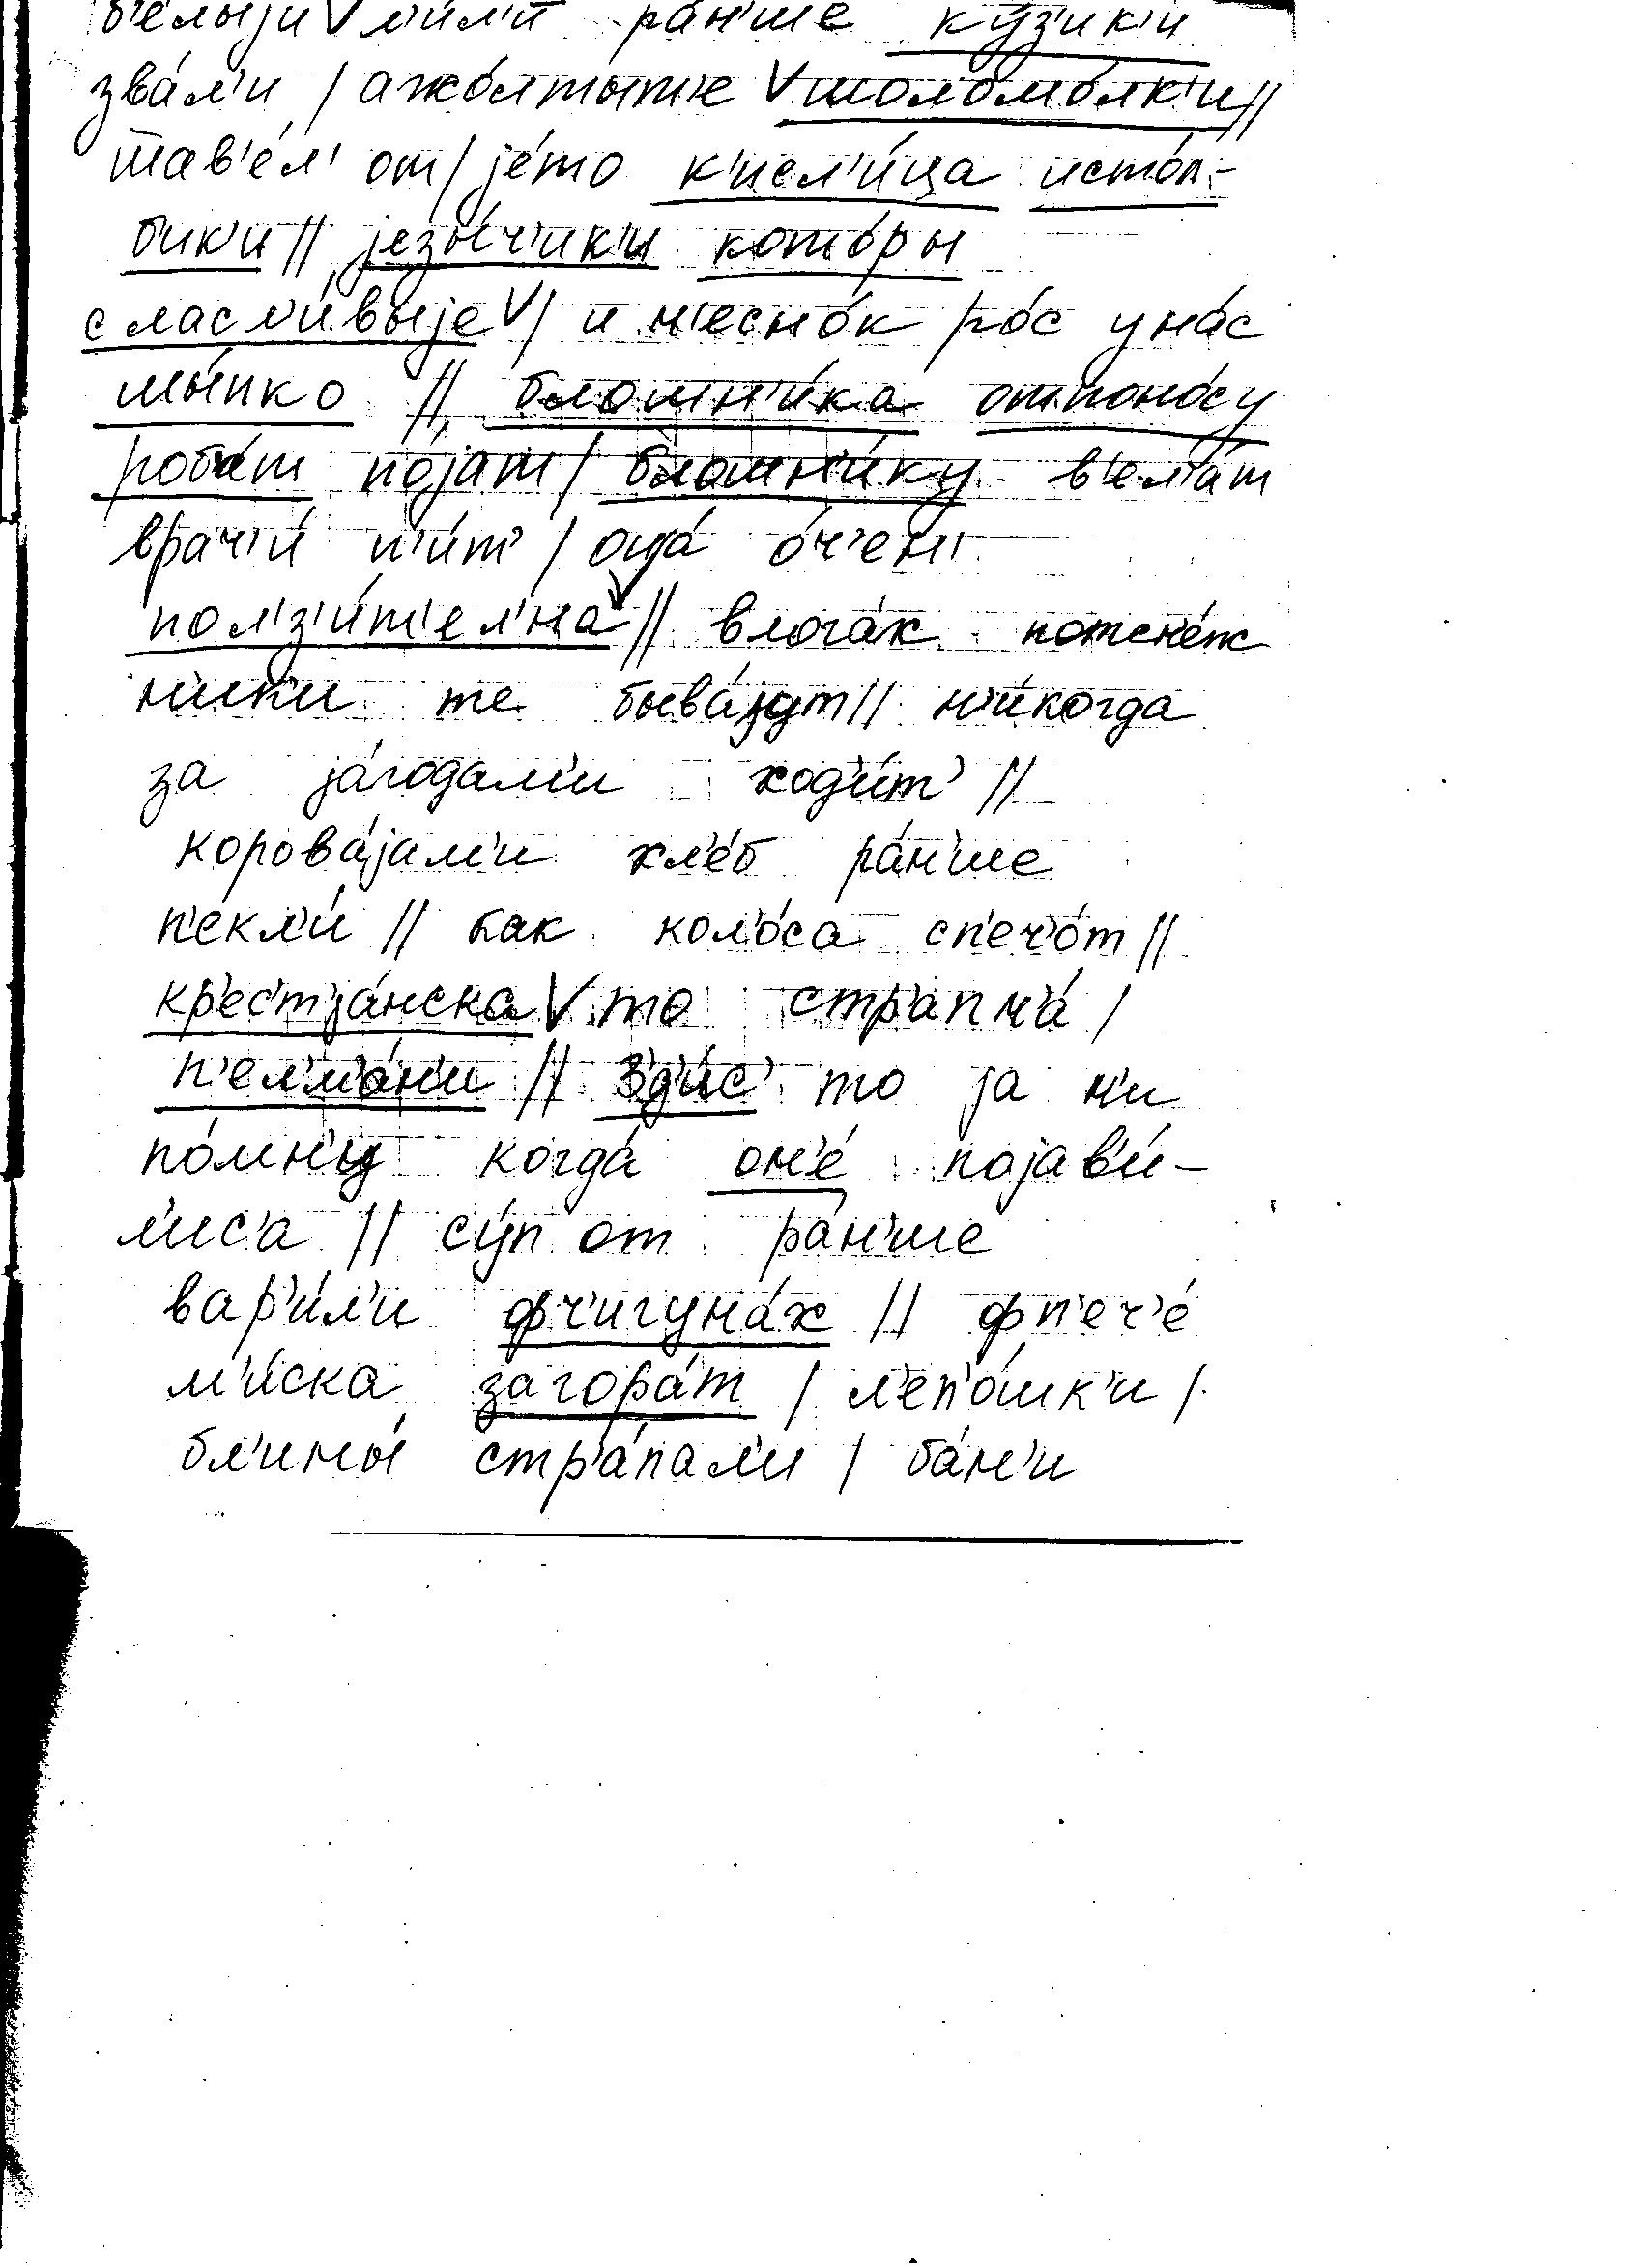 б'е́лыjи V л'и́л'и ра́н'ше ку́з'ик'и
зва́л'и / а жо́лтыт'е V шоломо́лк'и //
шав'е́л' от / jе́то к'исл'и́ца исто́л-
бик'и // jезы́ч'ик'и кото́ры
сласл'и́выjе V / и ч'есно́к ро́с у на́с
мы́лко // бломн'и́ка отпоно́су
роб'а́т по́jат / бломн'и́ку в'ел'а́т
врач'и́ п'и́т' / она́ о́ч'ен'
пол'з'и́т'ел'на // влога́х потсн'е́ж
ники те быва́jут // н'и́когда
за jа́годам'и ход'и́т' //
корова́jам'и хл'е́б ра́н'ше
п'екл'и́ // как кол'о́са сп'еч'о́т //
кр'ест'jа́нска V то стр'апн'а́ /
п'ел'м'а́н'и // З'д'и́с' то jа н'и
по́мн'у когда́ он'е́ поjав'и́-
л'ис'а // су́п от ра́н'ше
вар'и́л'и фч'игуна́х // фп'еч'е́
м'и́ска загор'а́т / л'еп'о́шк'и /
бл'ины́ стр'а́пал'и / ба́н'и